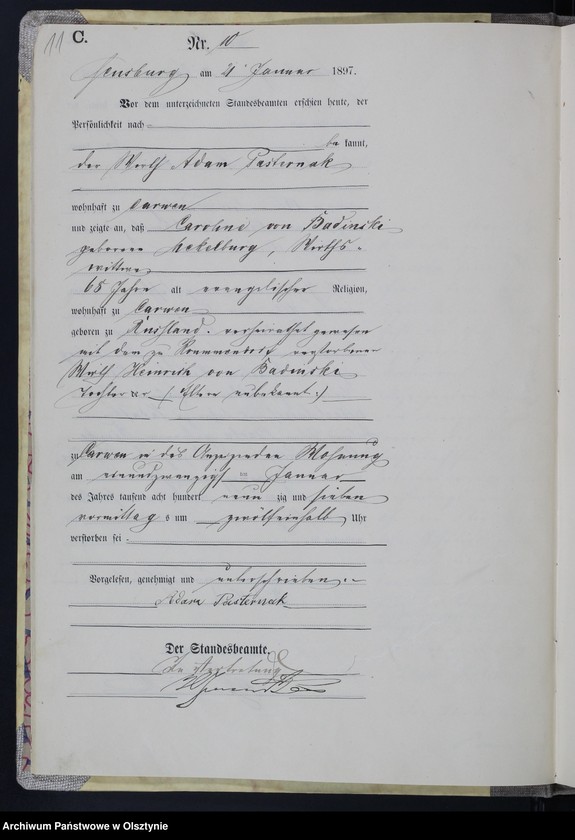 11 C.
Nr. 10
Sensburg am 21 Januar 1897.
Vor dem unterzeichneten Standesbeamten erschien heute, der
Persönlichkeit nach
be kannt,
der Wirth Adam Pasternak
wohnhaft zu Carwen
und zeigte an, daß Caroline von Badinski
geborene Lekelburg, Wirths-
wittwe
65 Jahre alt evangelischer Religion,
wohnhaft zu Carwen
geboren zu Russland. verheirathet gewesen
mit dem zu verstorbenen
Wirth Heinrich von Badinski
Tochter der (Eltern unbekannt.)
zu Carwen in des Anzeigenden Wohnung
am einundzwanzigsten Januar
des Jahres tausend acht hundert neun zig und sieben
vormittags um zwölfeinhalb Uhr
verstorben sei.
Vorgelesen, genehmigt und unterschrieben.
Adam Pasternak
Der Standesbeamte.
In Vertretung
Archiwum Państwowe w Olsztynie